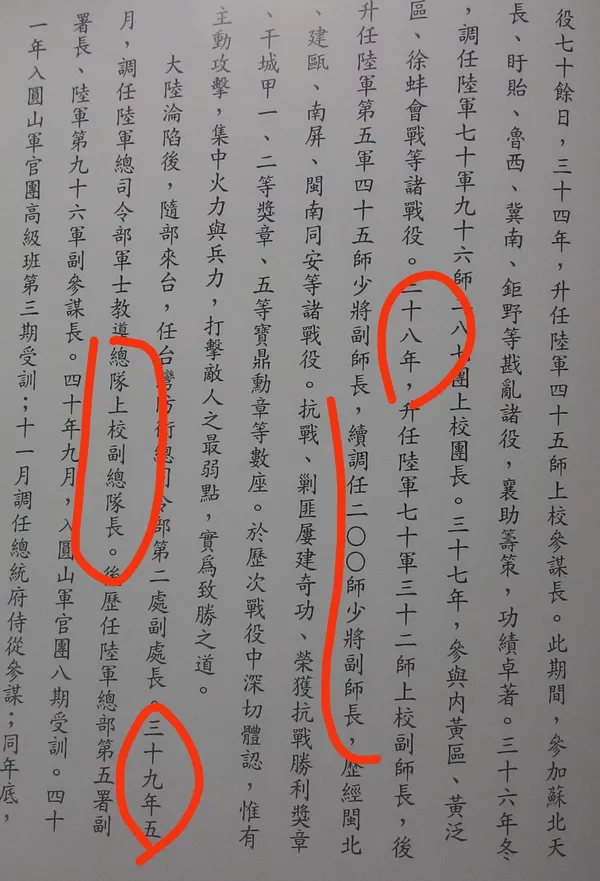 役七十餘日，三十四年，升任陸軍四十五師上校參謀長。此期間，參加蘇北天
長、盱眙、魯西、冀南、鉅野等戡亂諸役，襄助籌策，功績卓著。三十六年冬
，調任陸軍七十軍九十六師二八七團上校團長。三十七年，參與內黃區、黃泛
區、徐蚌會戰等諸戰役。三十八年，升任陸軍七十軍三十二師上校副師長，後
升任陸軍第五軍四十五師少將副師長，續調任二〇〇師少將副師長，歷經閩北
、建甌、南屏、閩南同安等諸戰役。抗戰、剿匪屢建奇功、榮獲抗戰勝利獎章
、干城甲一、二等獎章、五等寶鼎勳章等數座。於歷次戰役中深切體認，惟有
主動攻擊，集中火力與兵力，打擊敵人之最弱點，實為致勝之道。
大陸淪陷後，隨部來台，任台灣防衛總司令部第二處副處長。三十九年五
月，調任陸軍總司令部軍士教導總隊上校副總隊長。後歷任陸軍總部第五署副
署長、陸軍第九十六軍副參謀長。四十年九月，入圓山軍官團八期受訓。四十
一年入圓山軍官團高級班第三期受訓；十一月調任總統府侍從參謀；同年底，